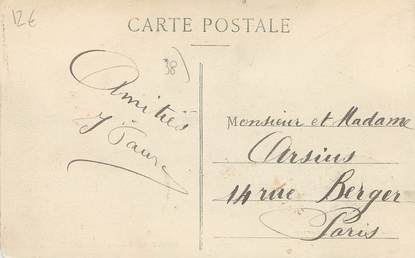 12€
CARTE POSTALE
38
Amitiés
J Faure
Monsieur et Madame
Arsius
14 rue Berger
Paris